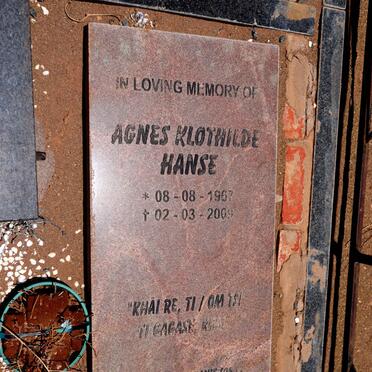 IN LOVING MEMORY OF
AGNES KLOTHILDE
HANSE
* 08 - 08 - 1967
† 02 - 03 - 2009
"KHAI RE, TI / OM TSI
TI